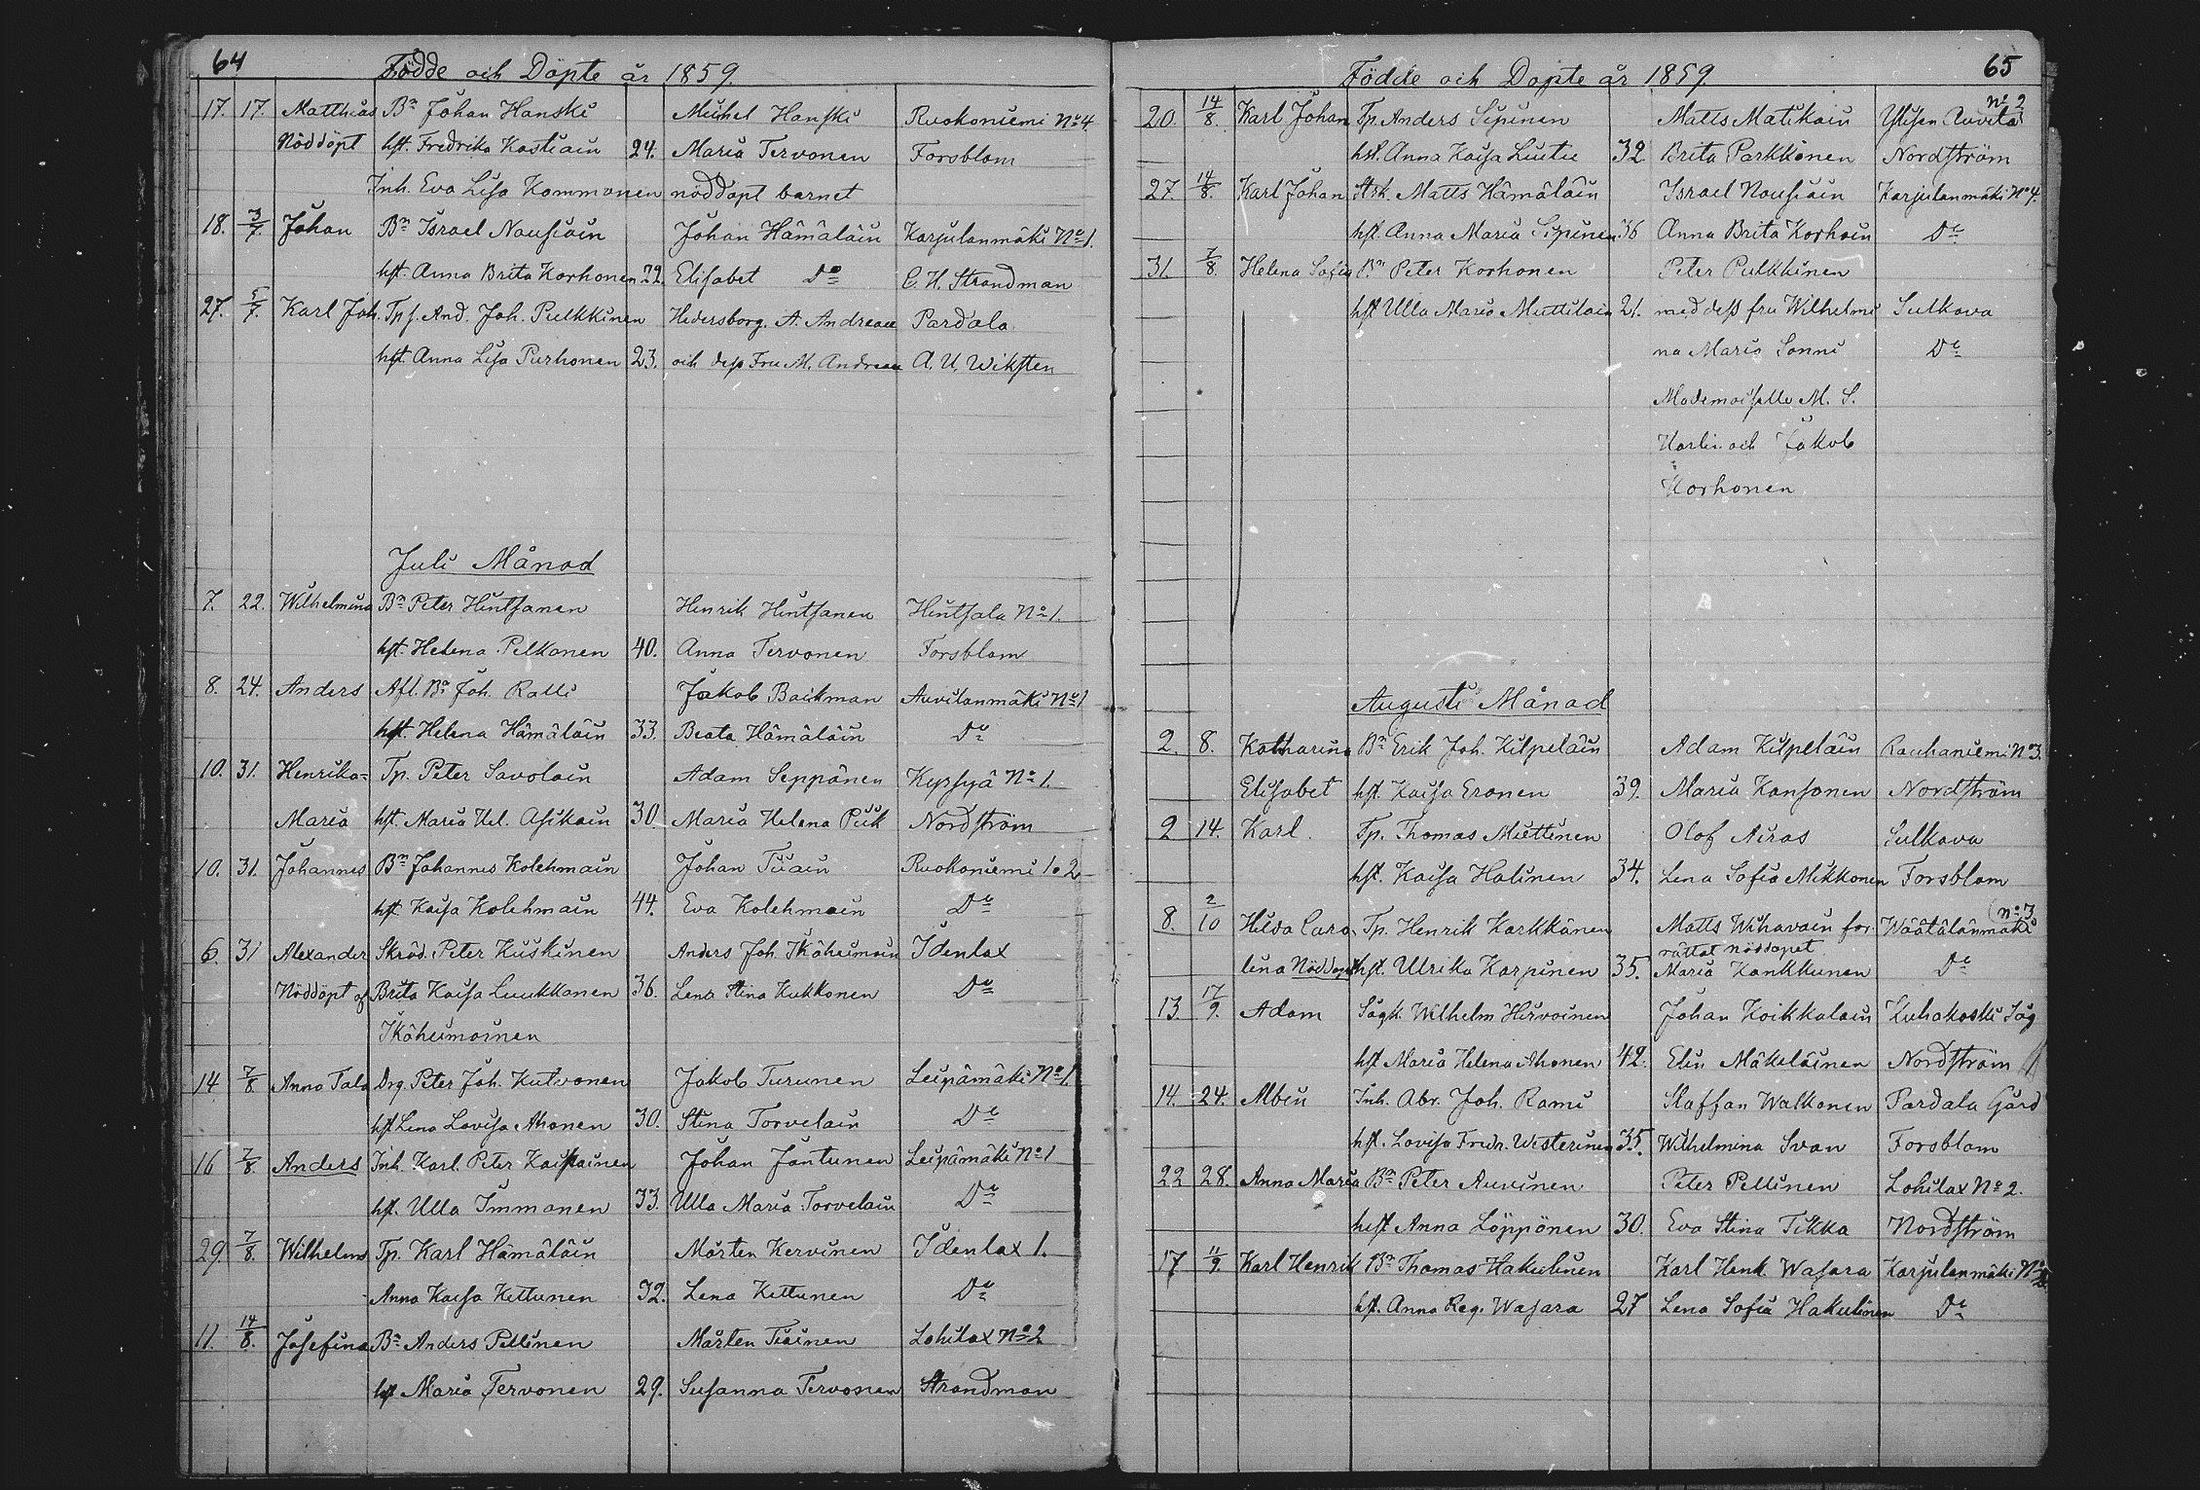 64
Födde och Döpte år 1859.
17. 17. Matthias Bn Johan Hanski Michel Hanski Ruokoniemi No 4.
Nöddöpt hst. Fredrika Kostiain 24. Maria Tervonen Forsblom
Inh. Eva Lisa Kommonen nöddöpt barnet
18. 3/7. Johan Bn Israel Nousiain Johan Hämäläin Karjulanmäki No 1.
hst. Anna Brita Korhonen 22. Elisabet Do C. H. Strandman
27. 5/7. Karl Joh. Tpf. And. Joh. Pulkkinen Hedersborg. A. Andreae Pardala
hst. Anna Lisa Purhonen 23. och dess Fru M. Andreae A. U. Wiksten
Juli Månad
7. 22. Wilhelmina Bn Peter Hintsanen Henrik Hintsanen Hintsala No 1.
hst. Helena Pelkonen 40. Anna Tervonen Forsblom
8. 24. Anders Afl. Bn Joh. Ralli Jakob Backman Auvilanmäki No 1
hst. Helena Hämäläin 33. Beata Hämäläin Do
10. 31. Henrika= Tp. Peter Savolain Adam Seppänen Kypsyä No 1.
Maria hst. Maria Hel. Asikain 30. Maria Helena Piik Nordström
10. 31. Johannes Bn Johannes Kolehmain Johan Tiiain Ruokoniemi 1o 2
hst. Kaisa Kolehmain 44. Eva Kolehmain Do
6. 31 Alexander Skräd. Peter Kiiskinen Anders Joh. Ikäheimoin Idenlax
Nöddöpt af Brita Kaisa Luukkanen 36. Lena Stina Kukkonen Do
Ikäheimoinen
14 7/8 Anna Tala Drg. Peter Joh. Kutvonen Jakob Turunen Leipämäki No 1.
hst Lena Lovisa Ahonen 30. Stina Torvelain Do
16 7/8 Anders Inh. Karl Peter Kaistainen Johan Jantunen Leipämäki No 1
hst. Ulla Immonen 33. Ulla Maria Torvelain Do
29. 7/8. Wilhelms Tp. Karl Hämäläin Mårten Kervinen Idenlax 1.
Anna Kaisa Kettunen 32. Lena Kettunen Do
11. 14/8. Josefina Bn Anders Pellinen Mårten Tiainen Lohilax No 2
hst Maria Tervonen 29. Susanna Tervonen Strandman
65
Födde och Döpte år 1859
20. 14/8. Karl Johan Tp. Anders Sipinen Matts Matikain Ylisen Auvila No 2
hst. Anna Kaisa Liutu 32 Brita Parkkonen Nordström
27. 14/8. Karl Johan Stk. Matts Hämäläin Israel Nousiain Karjulanmäki No 4.
hst. Anna Maria Sipinen 36 Anna Brita Korhoin Do
31. 7/8. Helena Sofia Bn Peter Korhonen Peter Pulkkinen
hst Ulla Maria Muttilain 21. med dess fru Wilhelmi Sulkava
na Maria Sonni Do
Mademoiselle M. S.
Karlin och Jakob
Korhonen
Augusti Månad
2. 8. Katharina Bn Erik Joh. Kilpeläin Adam Kilpeläin Rauhaniemi No 3.
Elisabet hst. Kaisa Eronen 39. Maria Kansonen Nordström
2 14. Karl. Tp. Thomas Miettinen Olof Airas Sulkava
hst. Kaisa Halinen 34. Lena Sofia Mikkonen Forsblom
8. 2/10 Hilda Caro. Tp. Henrik Karkkänen Matts Wihavain för- Wäätälänmäki No 3
rättat nöddopet
lina Nöddöpt hst. Ulrika Karpinen 35. Maria Kankkunen Do
13. 17/9. Adam Sågk. Wilhelm Hirvoinen Johan Koikkalain Luhakoski Såg
hst Maria Helena Ahonen 42. Elin Mäkeläinen Nordström
14. 24. Albin Inh. Abr. Joh. Rami Staffan Walkonen Pardala Gård
hst. Lovisa Fredr. Westerinen 35. Wilhelmina Svan Forsblom
22 28. Anna Maria Bn Peter Auvinen Peter Pellinen Lohilax No 2.
hust Anna Löppönen 30. Eva Stina Tikka Nordström
17 11/9 Karl Henrik Bn Thomas Hakulinen Karl Henk. Wasara Karjulanmäki No
hst. Anna Reg. Wasara 27 Lena Sofia Hakulinen Do